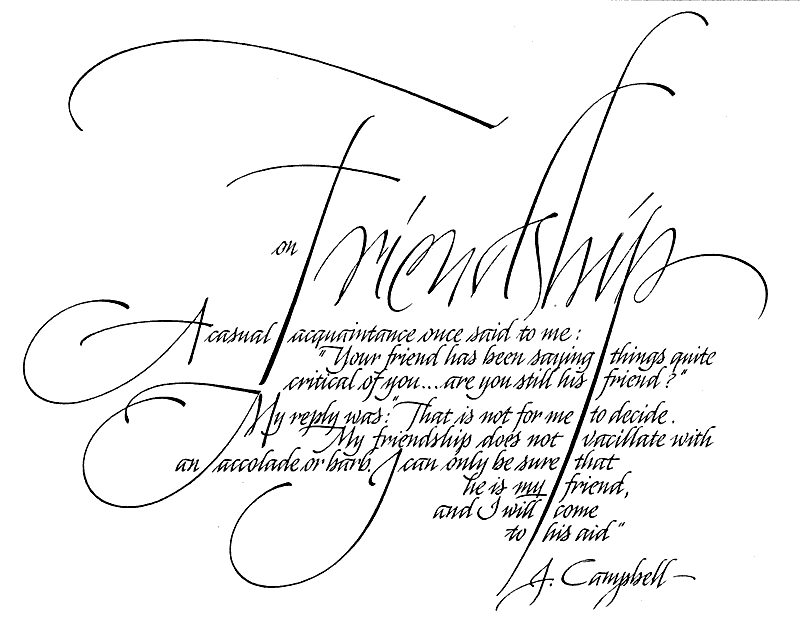 on Friendship
A casual acquaintance once said to me:
"Your friend has been saying things quite
critical of you....are you still his friend?"
My reply was: "That is not for me to decide.
My friendship does not vacillate with
an accolade or barb. I can only be sure that
he is my friend,
and I will come
to his aid"
A. Campbell